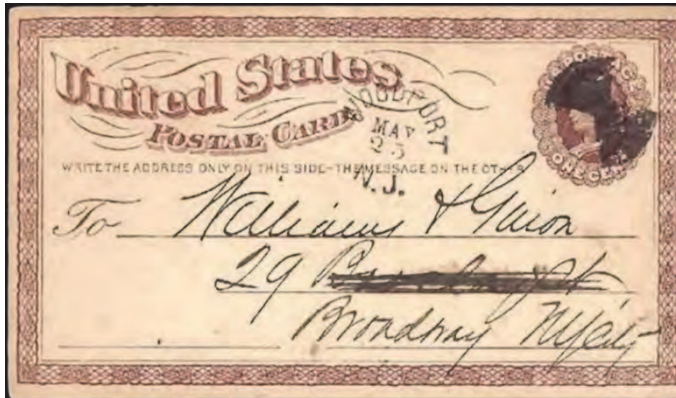 United States
POSTAL CARD
WOODPORT
MAY
25
N.J.
U.S. POSTAGE
ONE CENT
WRITE THE ADDRESS ONLY ON THIS SIDE-THE MESSAGE ON THE OTHER
To Williams & Guion
29
Broadway NYCity